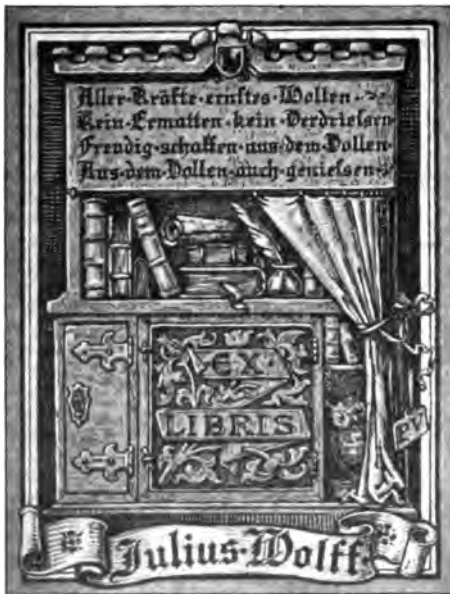 Aller·Kräfte·ernstes·Wollen·
Kein·Ermatten·kein·Verdriessen
Freudig·schaffen·aus·dem·Vollen
Aus·dem·Vollen·auch·geniessen·
EX·
LIBRIS
P.V.
Julius·Wolff·